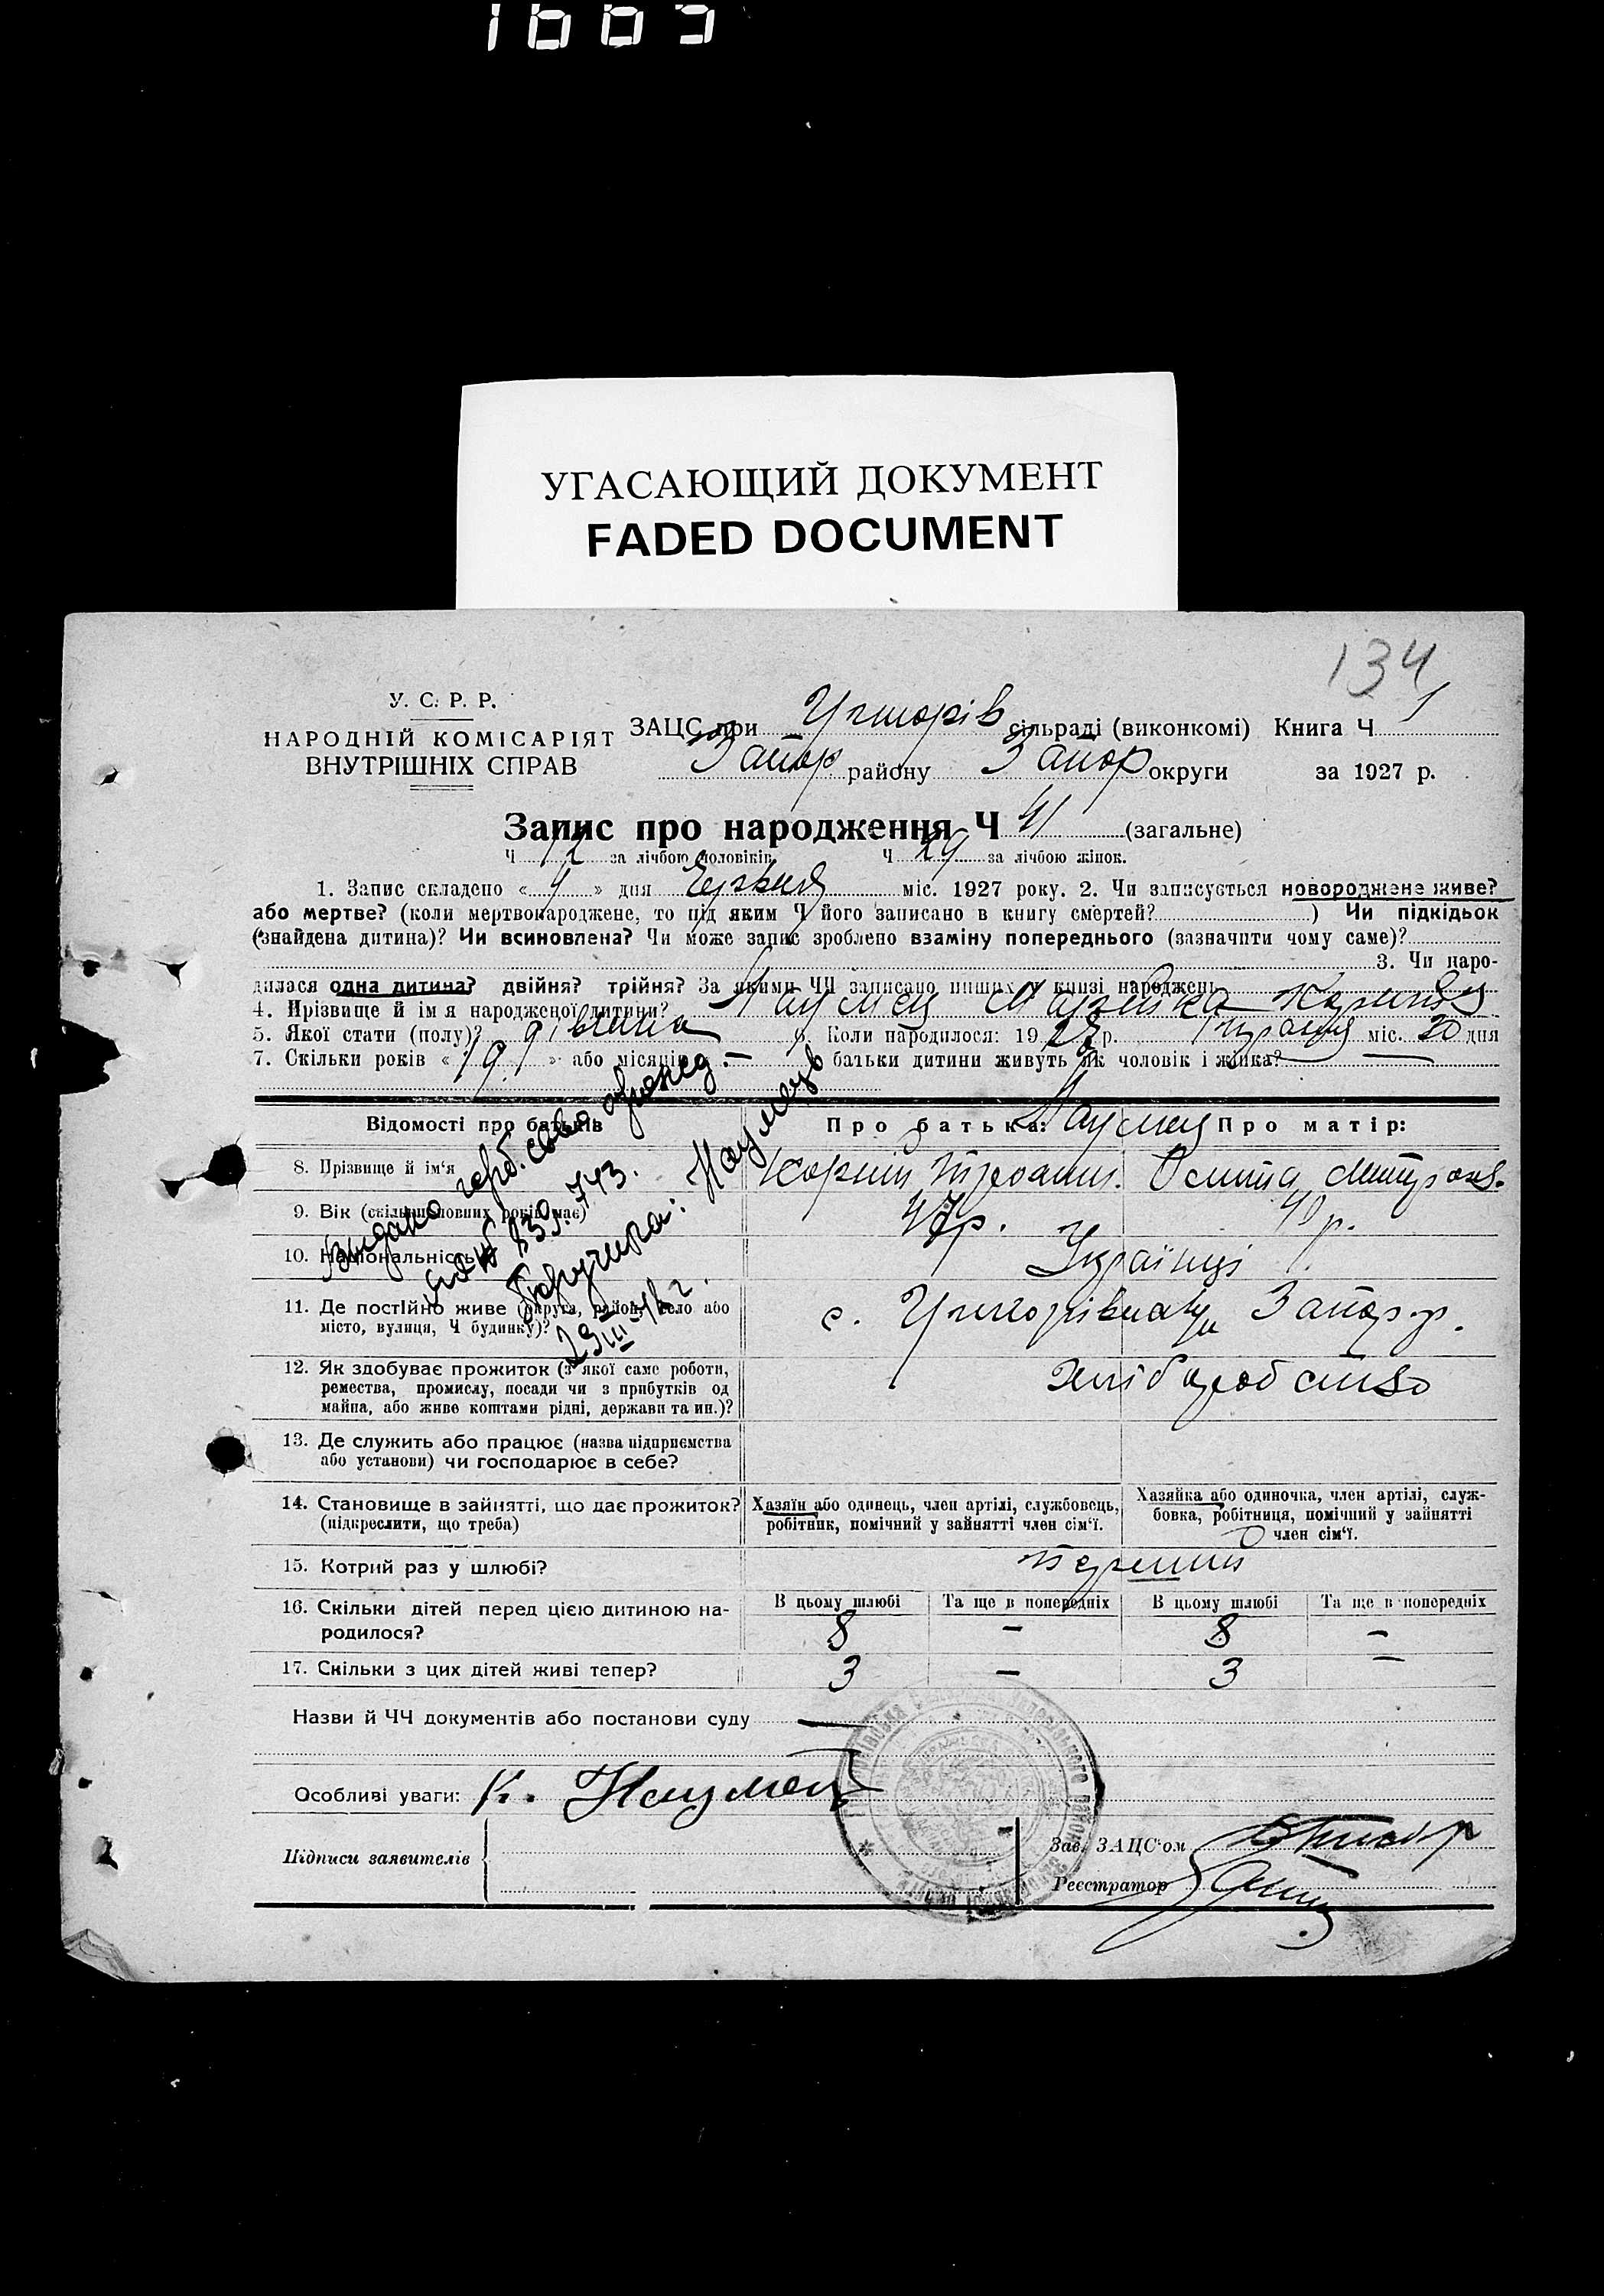 1665
УГАСАЮЩИЙ ДОКУМЕНТ
FADED DOCUMENT
134
У. С. Р. Р.
НАРОДНІЙ КОМІСАРІЯТ
ВНУТРІШНІХ СПРАВ
ЗАЦС при сільраді (виконкомі) Книга Ч 1
Запор району Запор округи за 1927 р.
Запис про народження Ч 41 (загальне)
Ч 12 за лічбою чоловіків. Ч 29 за лічбою жінок.
1. Запис складено « 4 » дня Червня міс. 1927 року. 2. Чи записується новороджене живе?
або мертве? (коли мертвонароджене, то під яким Ч його записано в книгу смертей? ) Чи підкідьок
(знайдена дитина)? Чи всиновлена? Чи може запис зроблено взаміну попереднього (зазначити чому саме)?
3. Чи наро-
дилася одна дитина? двійня? трійня? За якими ЧЧ записано инших у книзі народжень
4. Прізвище й ім'я народженої дитини? Наумец
5. Якої стати (полу)? дівчина 6. Коли народилося: 1927 р. Травня міс. 20 дня
7. Скільки років « 19 » або місяців — батьки дитини живуть як чоловік і жінка?
Відомості про батьків
Про батька: Наумец Про матір:
8. Прізвище й ім'я Корній
9. Вік (скільки повних років має) 47р. 40 р.
10. Національність Українці
11. Де постійно живе (округа, район, село або
місто, вулиця, Ч будинку)? с. Запор. р.
12. Як здобуває прожиток (з якої саме роботи,
ремества, промислу, посади чи з прибутків од
майна, або живе коштами рідні, держави та ин.)? Хліборобство
13. Де служить або працює (назва підприємства
або установи) чи господарює в себе?
14. Становище в зайнятті, що дає прожиток?
(підкреслити, що треба)
Хазяїн або одинець, член артілі, службовець,
робітник, помічний у зайнятті член сім'ї.
Хазяйка або одиночка, член артілі, служ-
бовка, робітниця, помічний у зайнятті
член сім'ї.
15. Котрий раз у шлюбі? Перший
16. Скільки дітей перед цією дитиною на-
родилося?
В цьому шлюбі Та ще в попередніх В цьому шлюбі Та ще в попередніх
8 — 8 —
17. Скільки з цих дітей живі тепер? 3 — 3 —
Назви й ЧЧ документів або постанови суду —
Особливі уваги: К. Наумец
Підписи заявителів
Зав. ЗАЦС'ом
Реєстратор
Выдано
Наумец